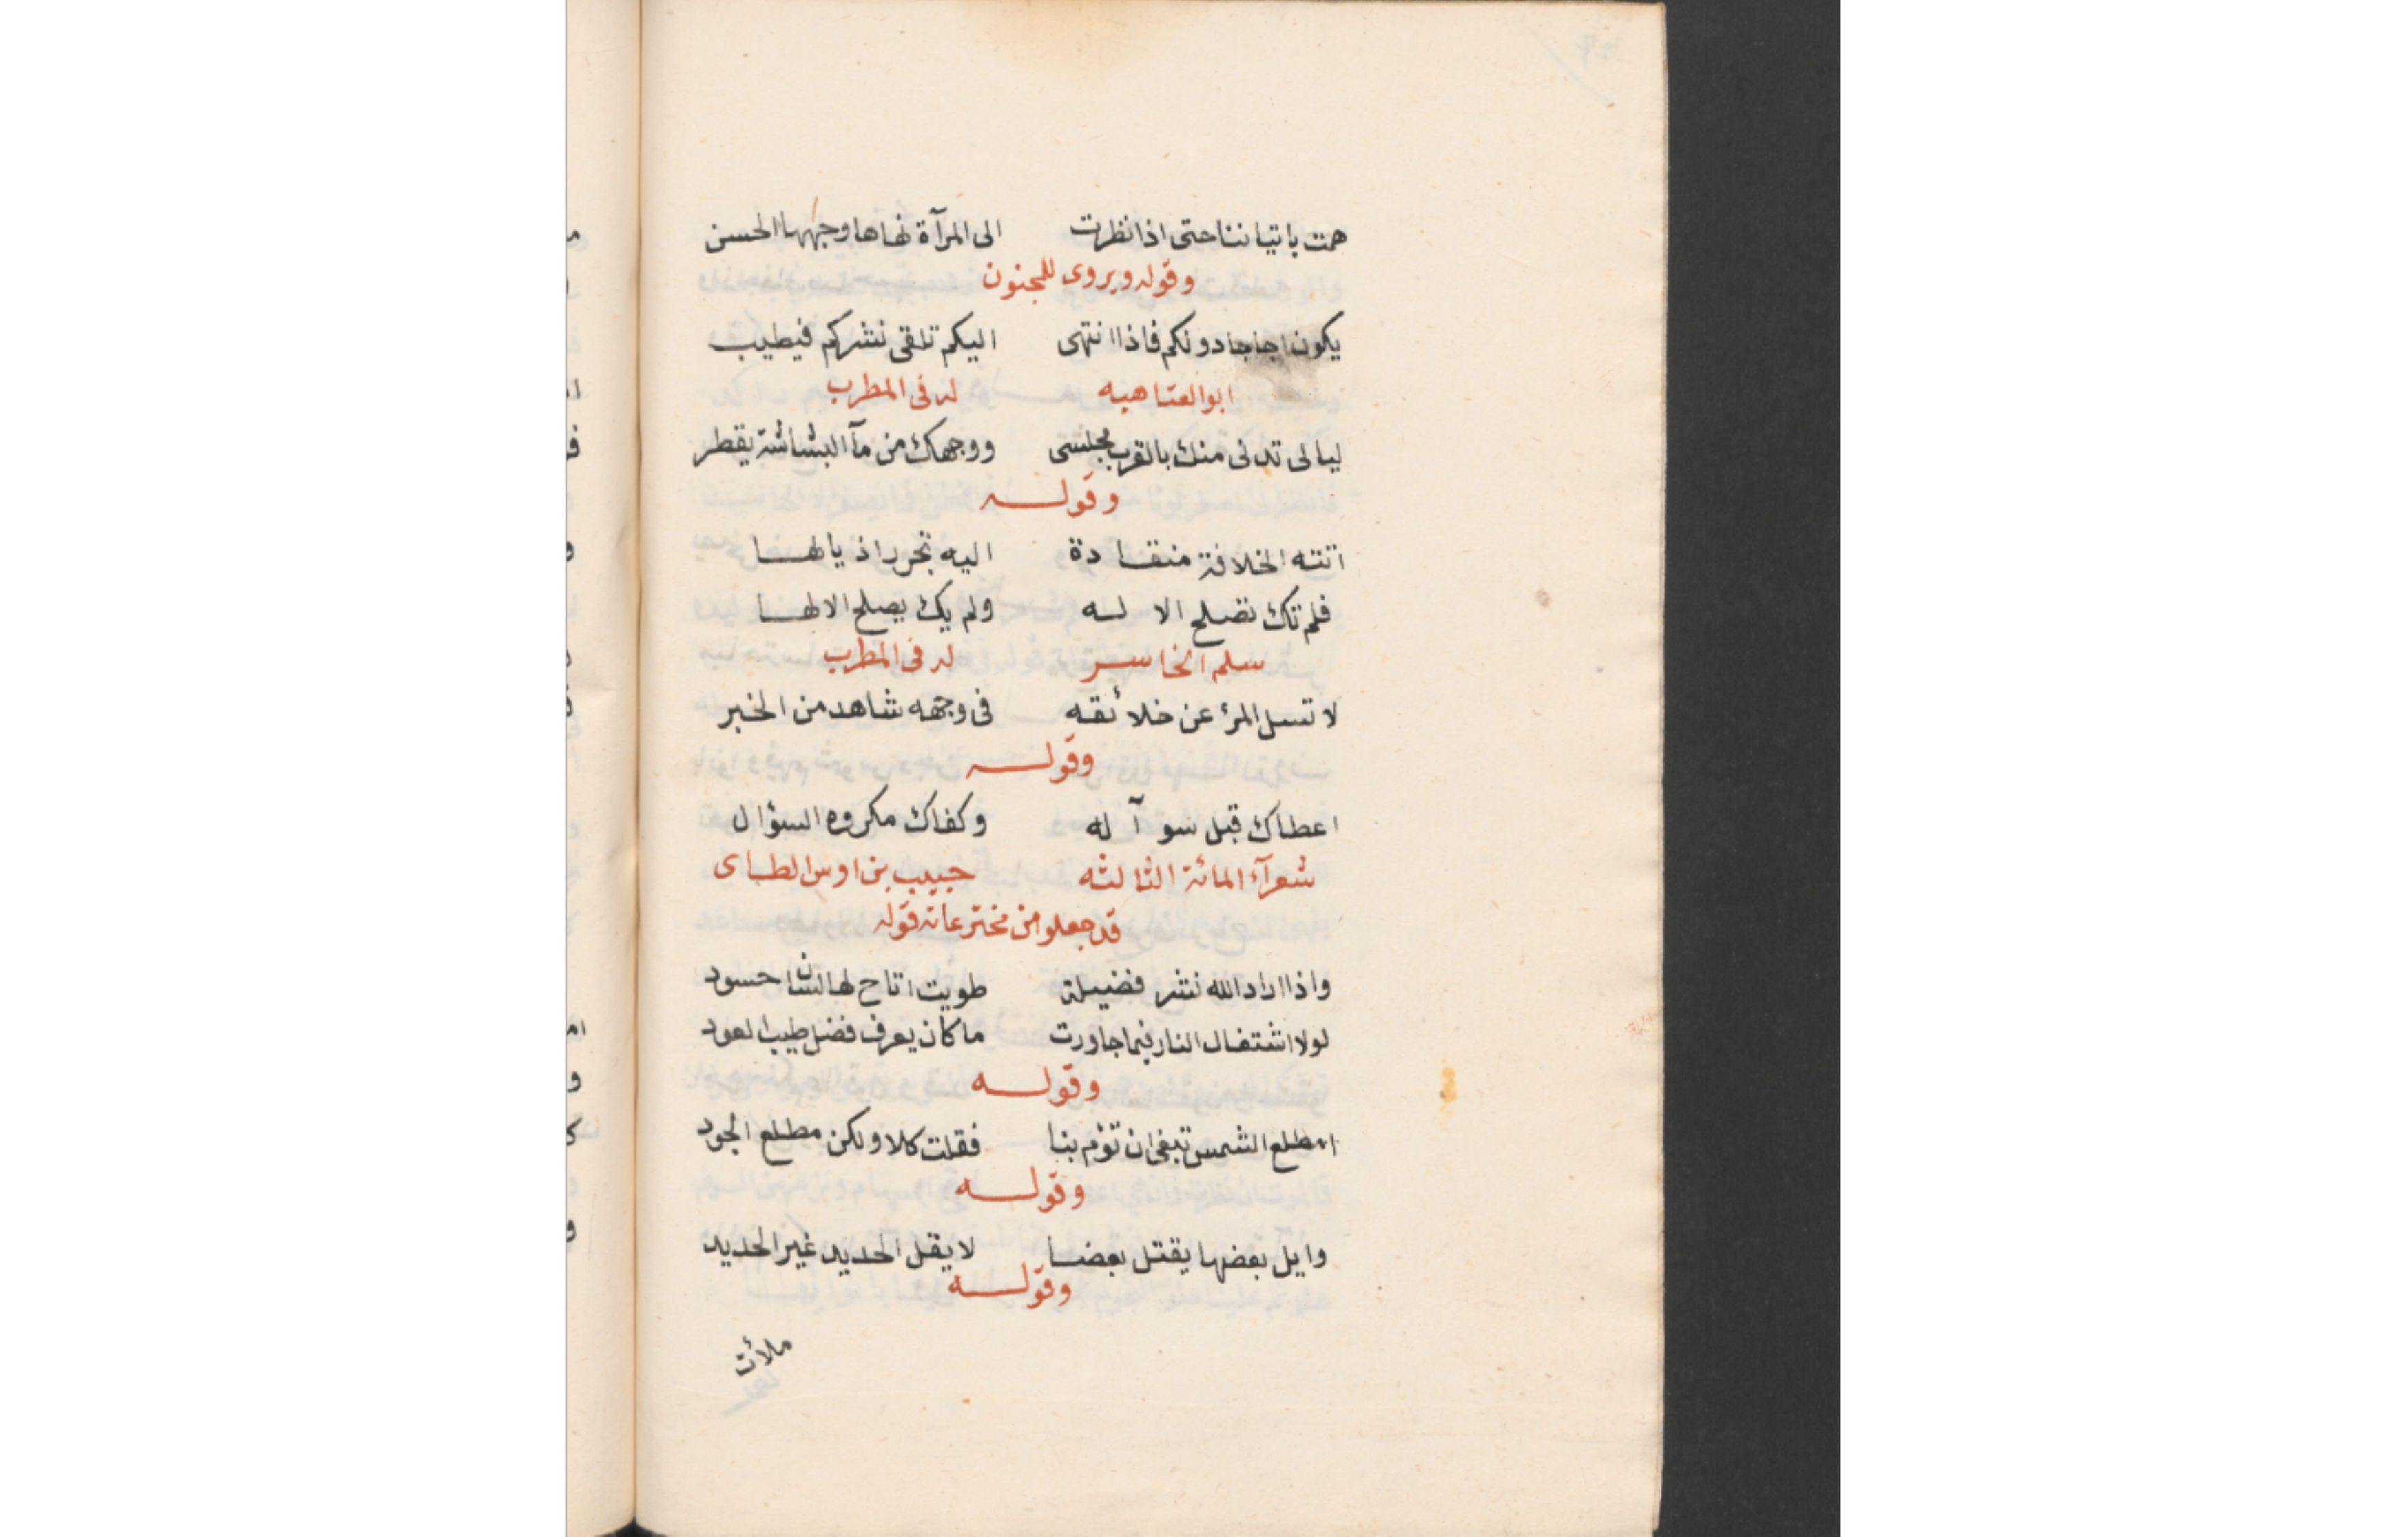 همت باتياننا حتى اذا نظرت الى المرآة نهاها وجهها الحسن
وقوله ويروى للمجنون
يكون اجاجا دونكم فاذا انتهى اليكم تلقى نشركم فيطيب
ابو العتاهيه له فى المطرب
ليالى تدنى منك بالقرب مجلسى ووجهك من مآ البشاشة يقطر
وقوله
اتته الخلافة منقادة اليه تجرر اذيالها
فلم تك تصلح الا له ولم يك يصلح الا لها
سلم الخاسر له فى المطرب
لا تسل المرء عن خلائقه فى وجهه شاهد من الخبر
وقوله
اعطاك قبل سوآله وكفاك مكروه السؤال
شعرآء المائة الثالثه حبيب بن اوس الطاى
قد جعلو من مخترعاته قوله
واذا اراد الله نشر فضيلة طويت اتاح لها لسان حسود
لولا اشتغال النار فيما جاورت ما كان يعرف فضل طيب العود
وقوله
امطلع الشمس تبغى ان تؤم بنا فقلت كلا ولكن مطلع الجود
وقوله
وايل بعضها يقتل بعضا لا يفل الحديد غير الحديد
وقوله
ملأت